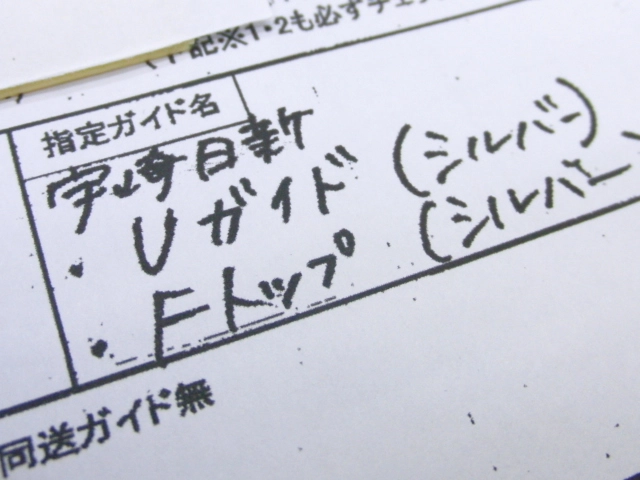 下記※1・2も必ずチェッ
指定ガイド名
宮崎日新
・Uガイド (シルバー)
・Fトップ (シルバー
同送ガイド無